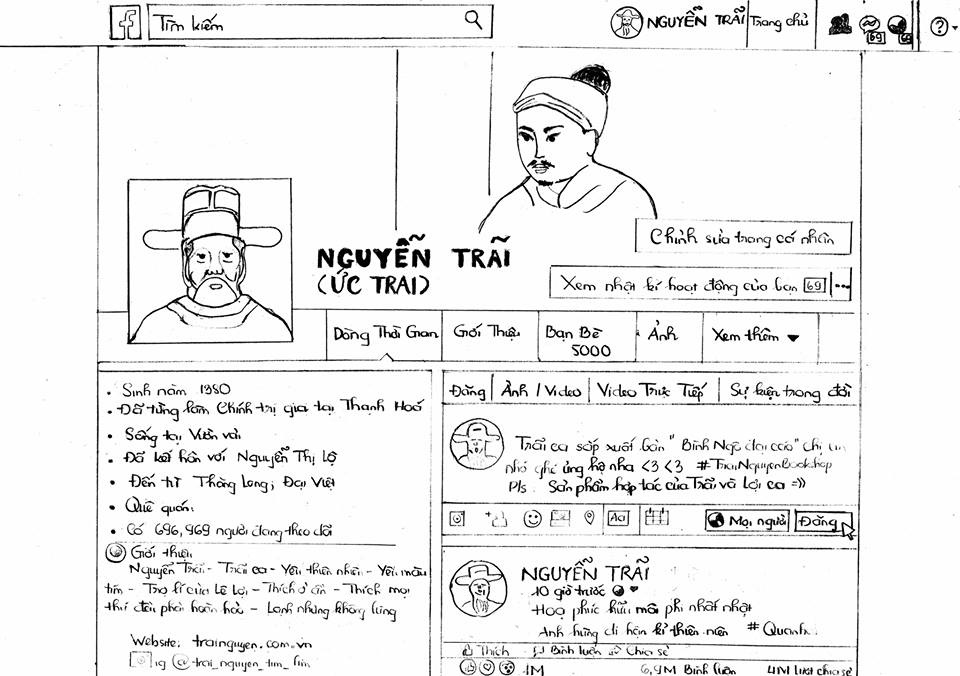 f
Tìm kiếm
NGUYỄN TRÃI
Trang chủ
69
69
?
NGUYỄN TRÃI
(ỨC TRAI)
Chỉnh sửa trang cá nhân
Xem nhật kí hoạt động của bạn 69 ...
Dòng Thời Gian
Giới Thiệu
Bạn Bè
5000
Ảnh
Xem thêm
• Sinh năm 1380
• Đã từng làm Chính trị gia tại Thanh Hoá
• Sống tại Vườn vải
• Đã kết hôn với Nguyễn Thị Lộ
• Đến từ Thăng Long, Đại Việt
• Quê quán:
• Có 696,969 người đang theo dõi
Giới thiệu
Nguyễn Trãi - Trãi ca - Yêu thiên nhiên - Yêu màu
tím - Trợ lí của Lê Lợi - Thích ở ẩn - Thích mọi
thứ đều phải hoàn hảo - Lạnh nhưng không lùng
Website: trainguyen.com.vn
ig @trai_nguyen_tim_lim
Đăng
Ảnh / Video
Video Trực Tiếp
Sự kiện trong đời
Trãi ca sắp xuất bản "Bình Ngô đại cáo" chị em
nhớ ghé ủng hộ nha <3 <3 #TraiNguyenBookshop
Pls. Sản phẩm hợp tác của Trãi và Lợi ca =))
Aa
Mọi người
Đăng
NGUYỄN TRÃI
10 giờ trước
Hoạ phúc hữu môi phi nhất nhật
Anh hùng di hận kỉ thiên niên #Quanhải
Thích
Bình luận
Chia sẻ
1M
6,9M Bình luận
4M lượt chia sẻ